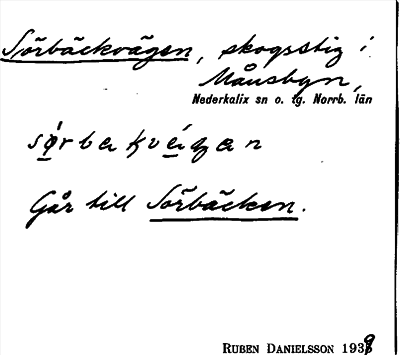 Sörbäckvägen, skogsstig i
Månsbyn,
Nederkalix sn o. tg. Norrb. län
Går till Sörbäcken.
RUBEN DANIELSSON 1939